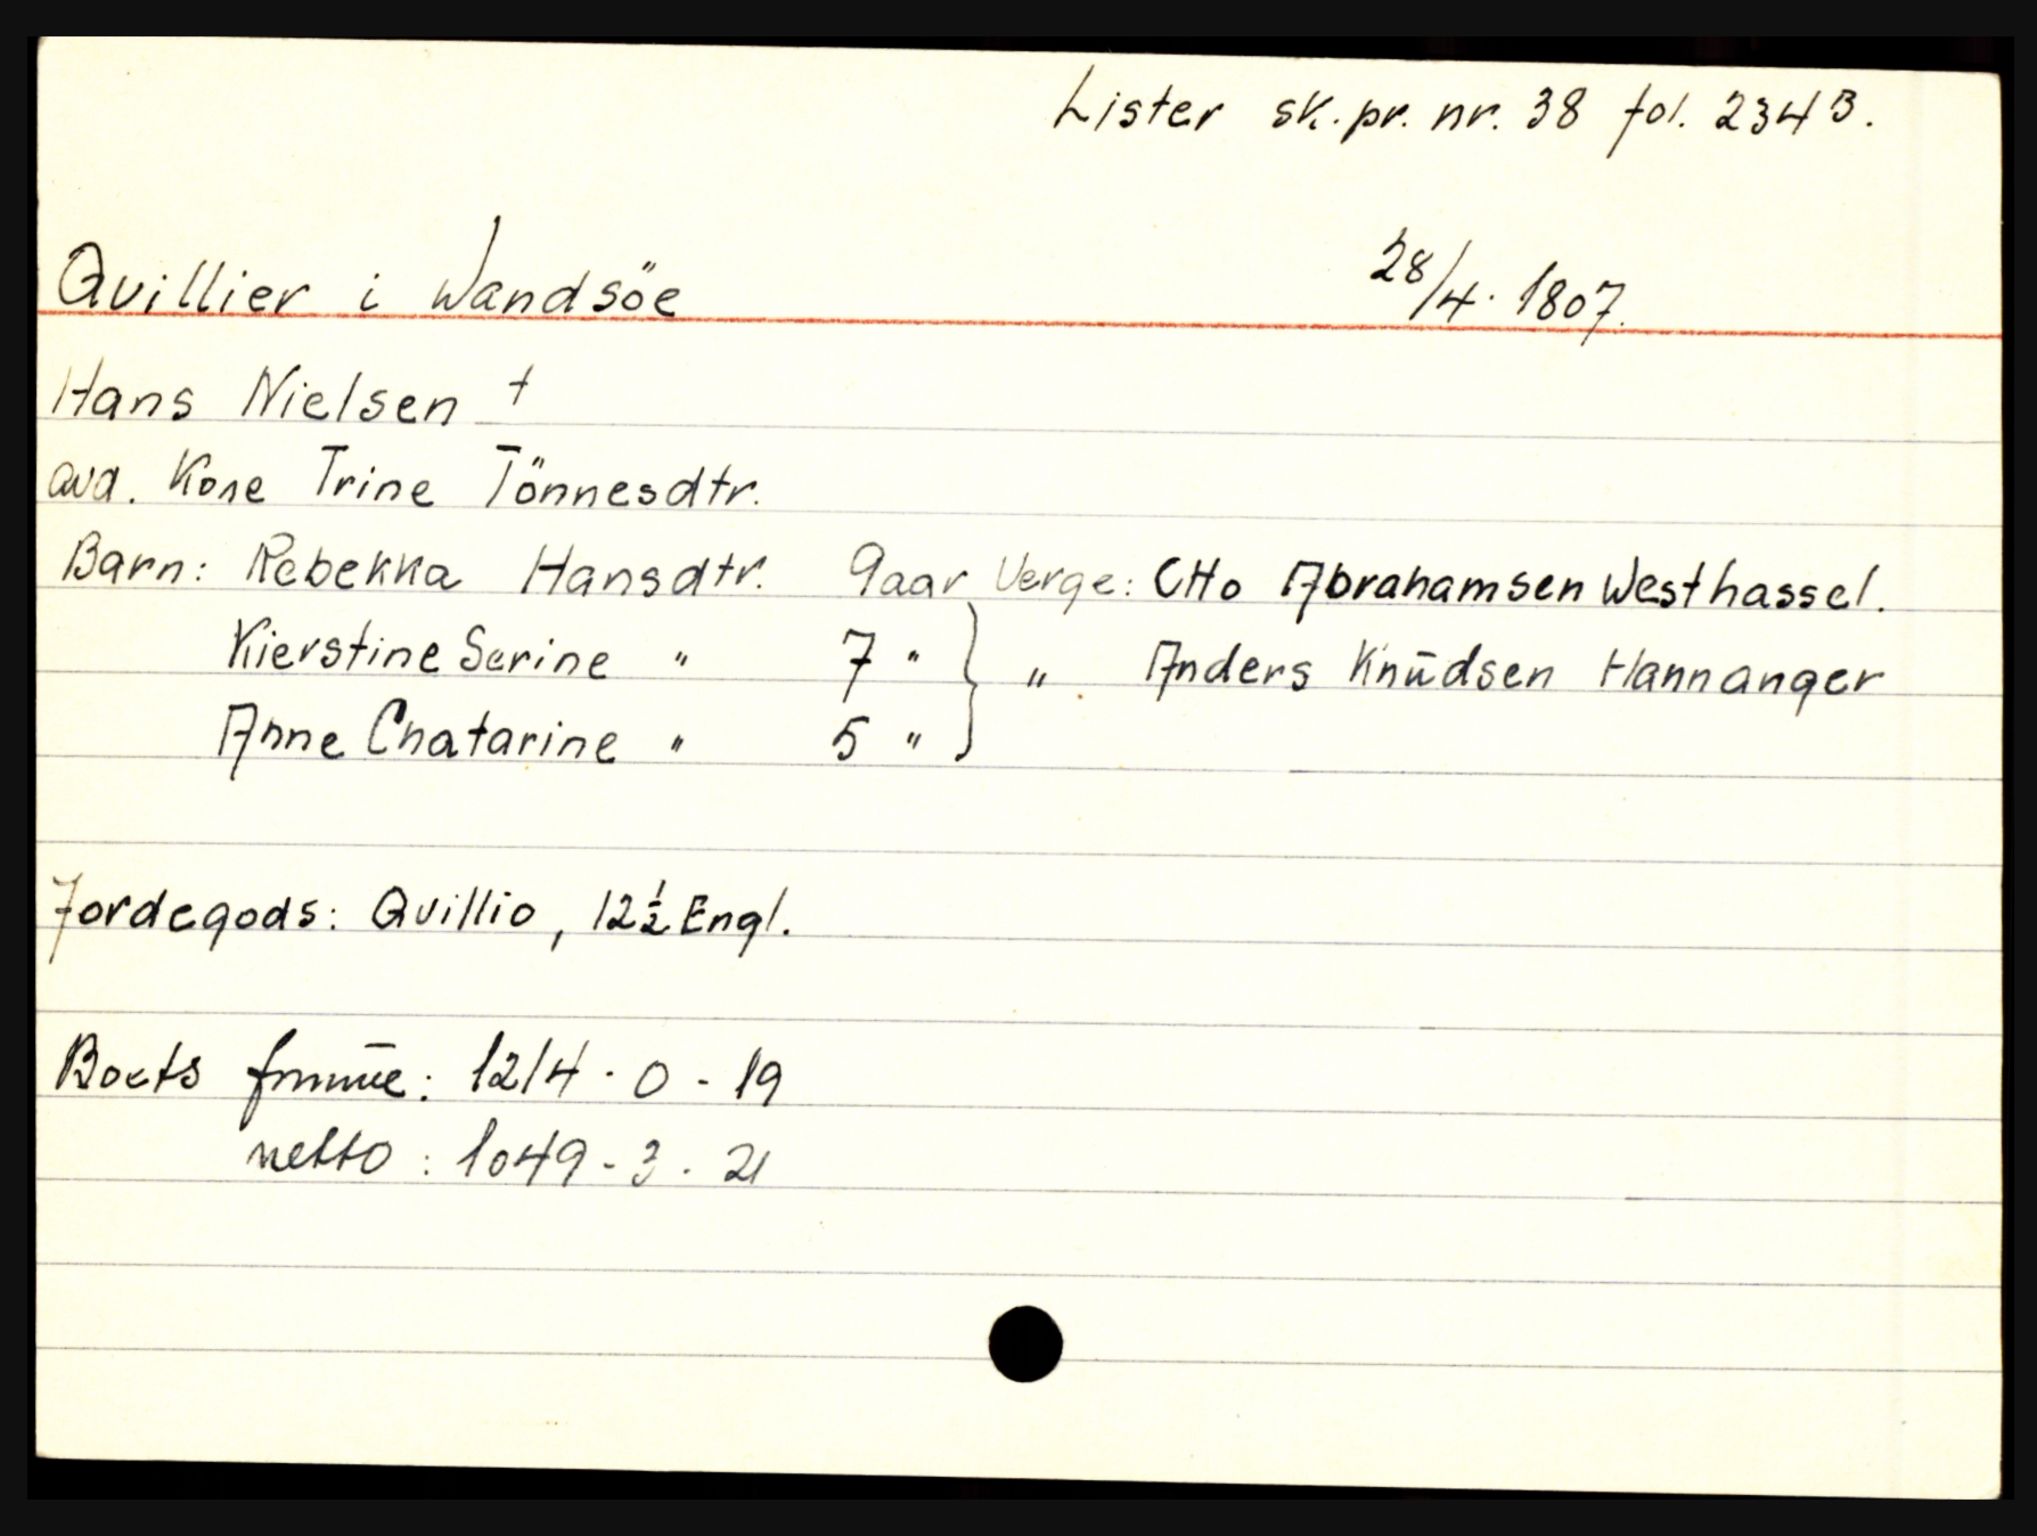 Lister sk.pr. nr. 38 fol. 234B.
Qvillier i Wandsöe 28/4. 1807.
Hans Nielsen †
Kone Trine Tönnesdtr.
Barn: Rebekka Hansdtr. 9aar Verge: Otto Abrahamsen Westhassel.
Kierstine Serine " 7 " } " Anders Knūdsen Hannanger
Anne Chatarine " 5 " }
Jordegods: Qvillio, 12½ Engl.
Boets : 1214 - 0 - 19
netto : 1049 - 3 - 21